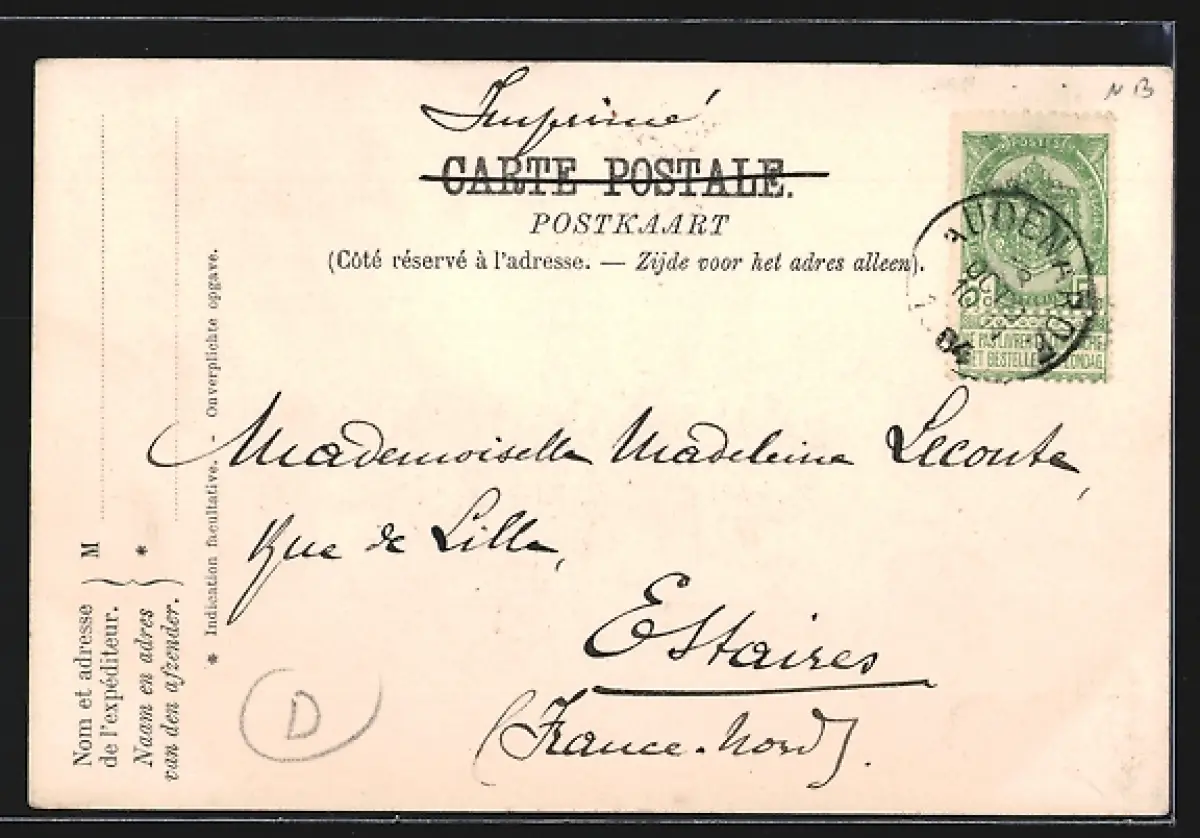 N B
Imprimé
CARTE POSTALE.
POSTKAART
(Côté réservé à l'adresse. — Zijde voor het adres alleen).
POSTES
AUDENAARDE
10
04
5
NE PAS LIVRER
NIET BESTELLEN ZONDAG
Mademoiselle Madeleine Leconte,
Rue de Lille,
Estaires
(France-Nord)
D
Nom et adresse
de l'expéditeur. } M
Naam en adres
van den afzender. } *
* Indication facultative. - Onverplichte opgave.